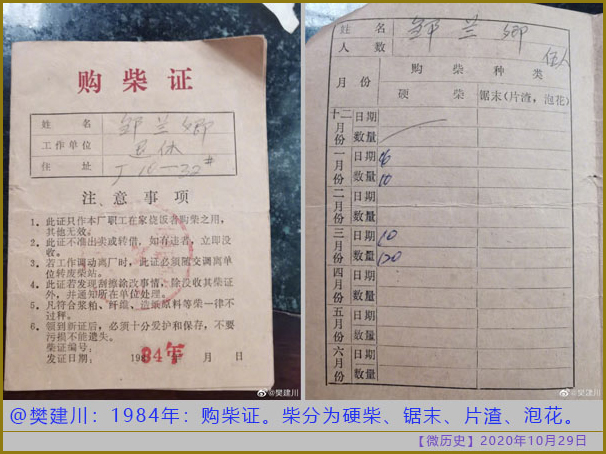 购柴证
姓名 邹兰卿
工作单位 退休
住址 J16-32#
注意事项
1、此证只作本厂职工在家烧饭者购柴之用，
其他无效。
2、此证不准出卖或转借，如有违者，立即没
收。
3、若工作调动离厂时，此证必须随交调离单
位转废柴站。
4、此证若发现刮擦涂改事情，除没收其柴证
外，并通知所在单位处理。
5、凡符合浆粕、纤维、造纸原料等柴一律不
过秤。
6、领到新证后，必须十分爱护和保存，不要
污损不能遗失。
柴证编号：
发证日期： 1984年 月 日
@樊建川
姓名 邹兰卿
人数 住人
月份 购柴种类
硬柴 锯末（片渣，泡花）
十二月份 日期
数量
一月份 日期
数量 10
二月份 日期
数量
三月份 日期 10
数量 120
四月份 日期
数量
五月份 日期
数量
六月份 日期
数量
@樊建川
@樊建川：1984年：购柴证。柴分为硬柴、锯末、片渣、泡花。
【微历史】2020年10月29日